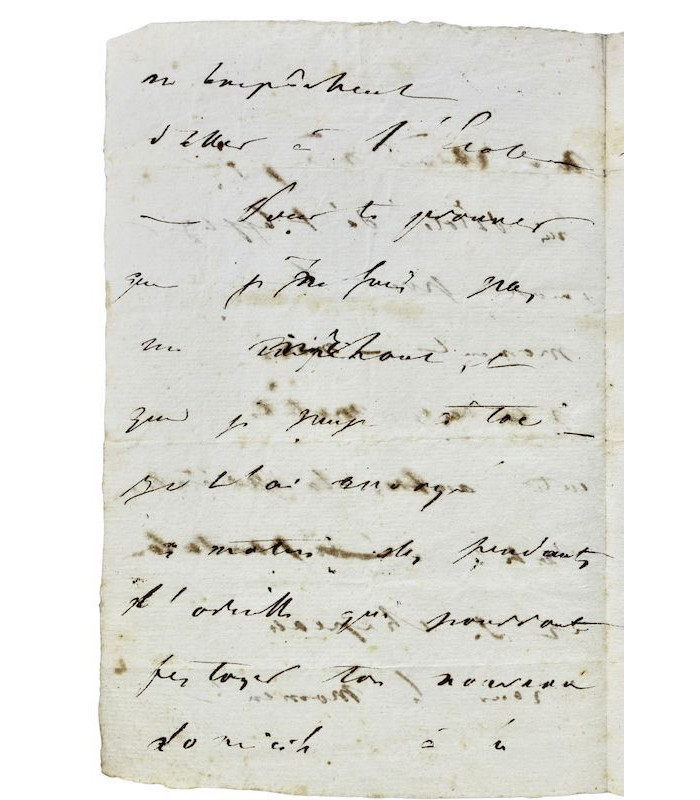 m'empêchent
d'aller à l'école
— Pour te prouver
que je ne suis pas
un méchant, et
que je songe à toi —
je t'ai envoyé
ce matin des pendants
d'oreille qui pourront
ton nouveau
domicile